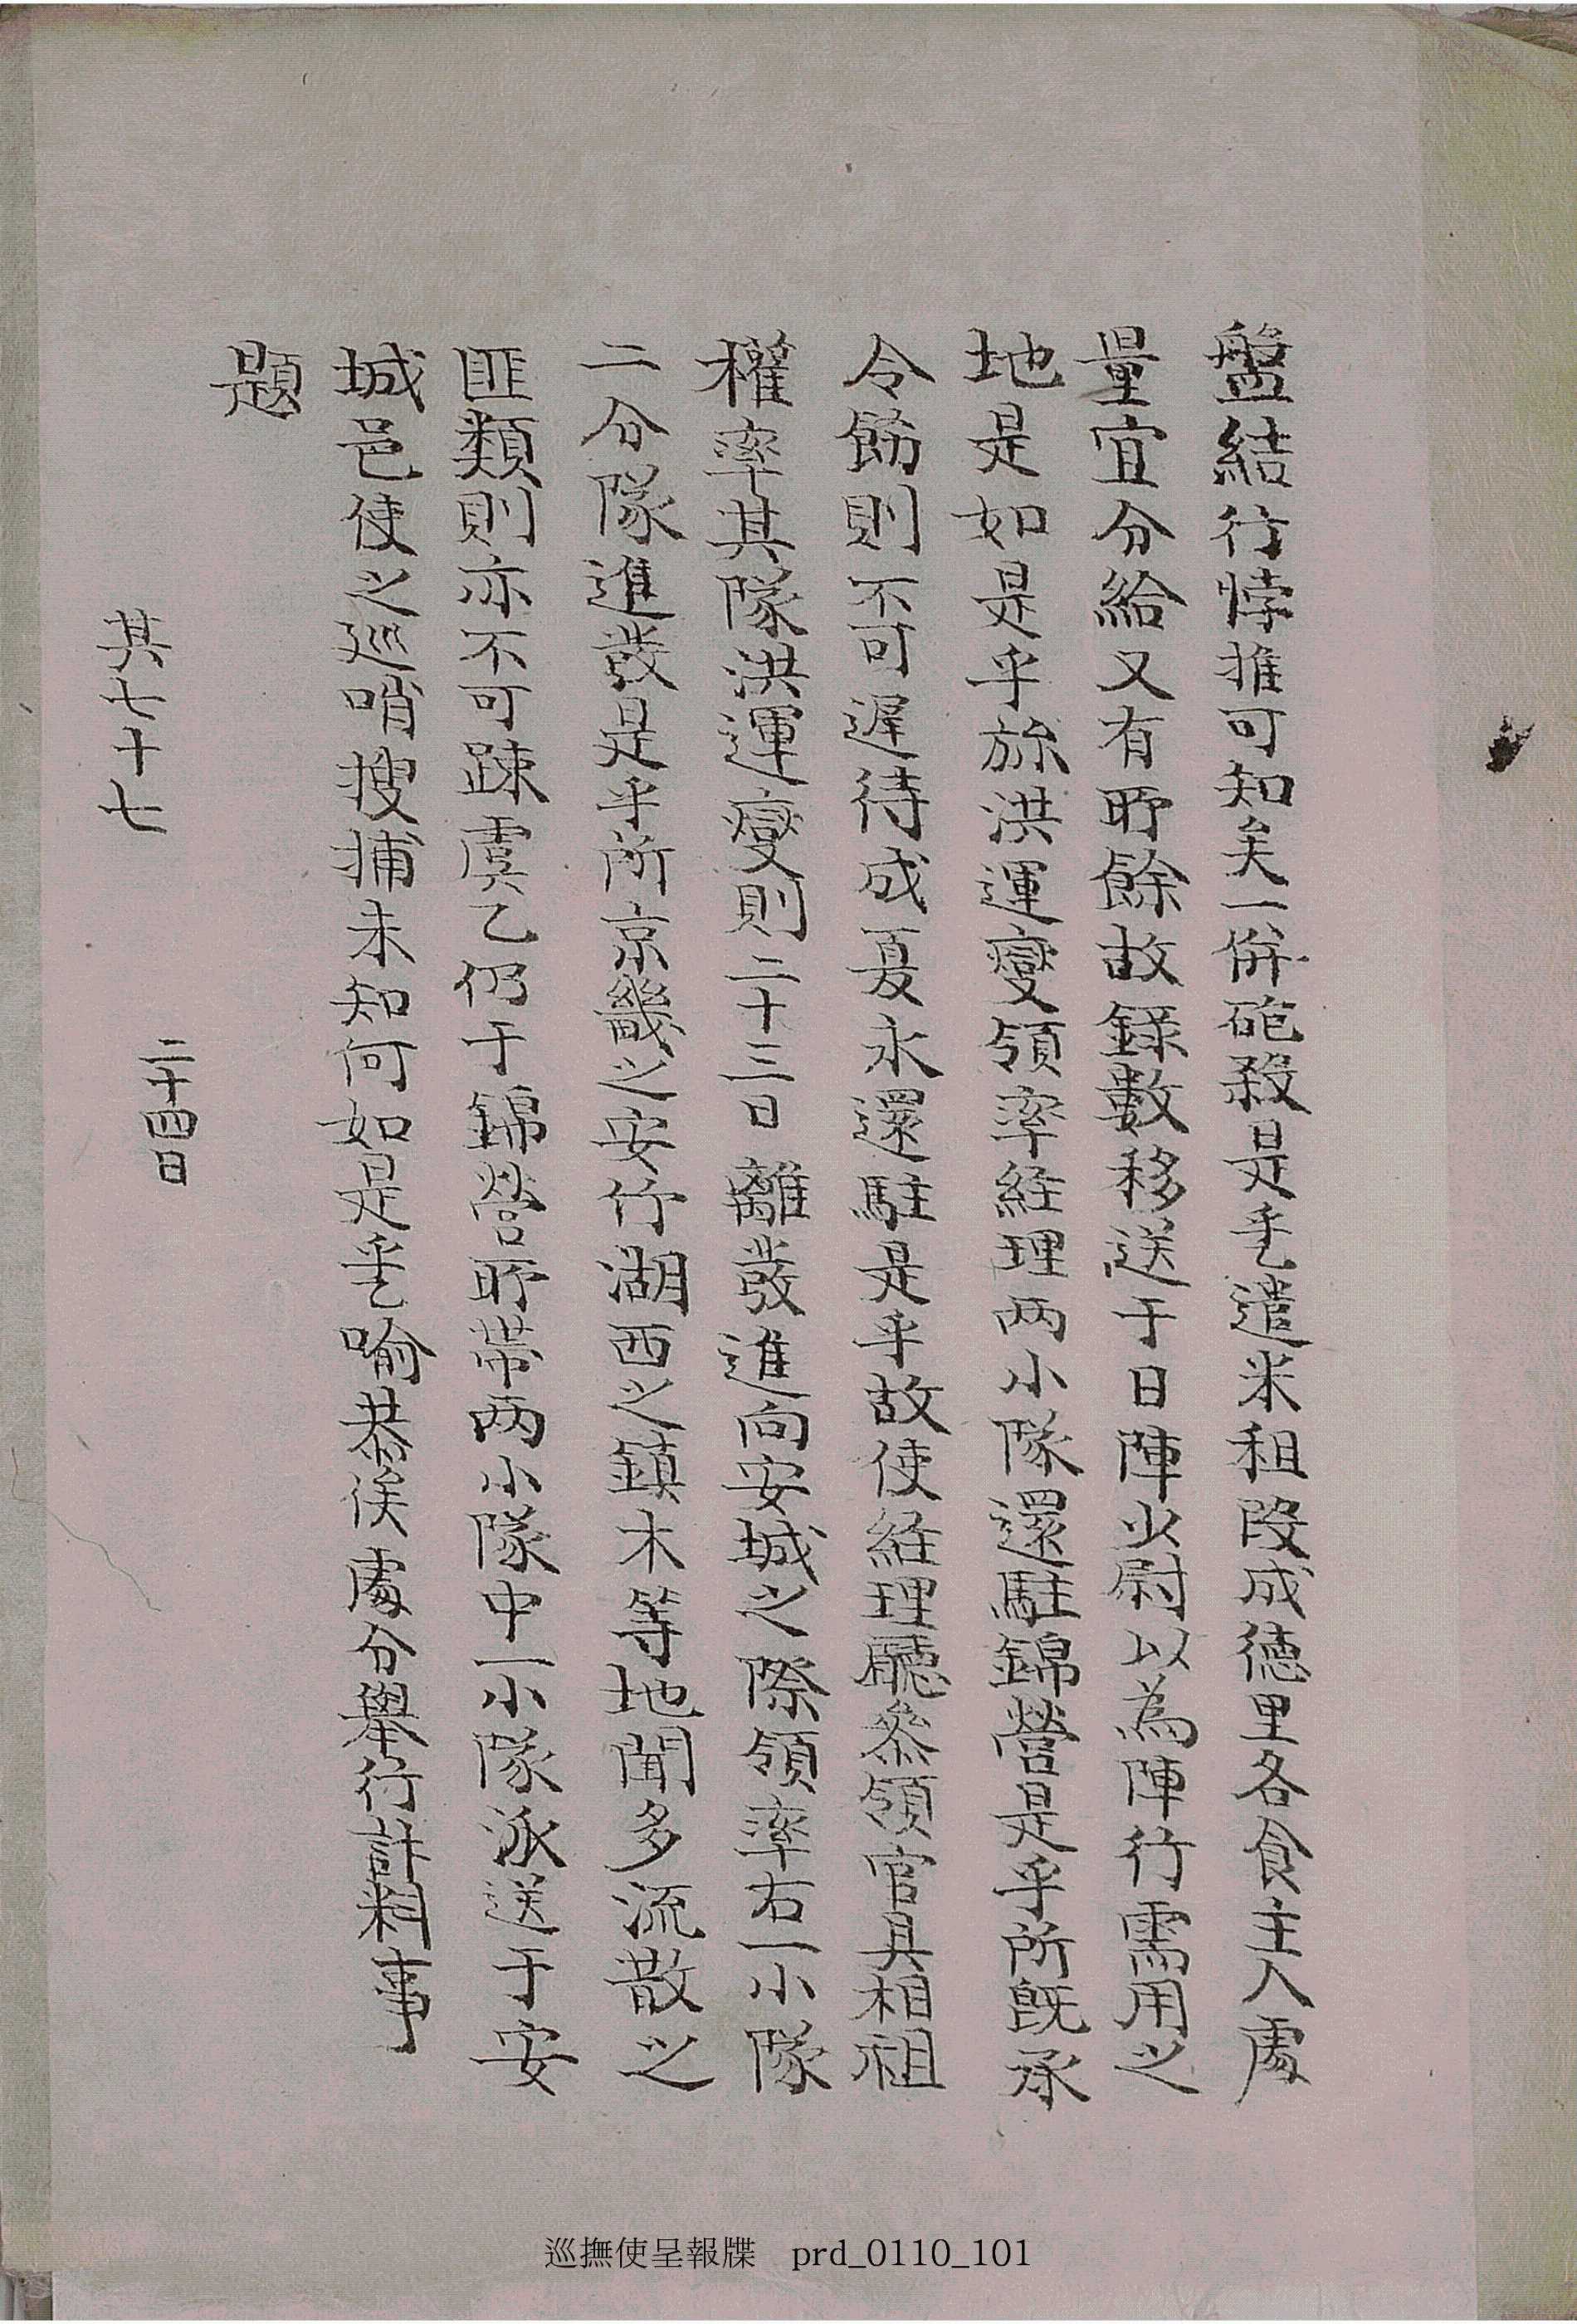 盤結行悖推可知矣一併砲殺是乎㫆遣米租段成德里各食主人處
量宜分給又有所餘故錄數移送于日陣少尉以為陣行需用之
地是如是乎旀洪運燮領率經理兩小隊還駐錦營是乎所既承
令飭則不可遲待成夏永還駐是乎故使經理廳參領官具相祖
權率其隊洪運燮則二十三日離發進向安城之際領率右一小隊
二分隊進發是乎所京畿之安竹湖西之鎮木等地聞多流散之
匪類則亦不可踈虞乙仍于錦營所帶兩小隊中一小隊派送于安
城邑使之巡哨搜捕未知何如是乎㫆喻恭俟處分舉行計料事
題
其七十七 二十四日
巡撫使呈報牒 prd_0110_101